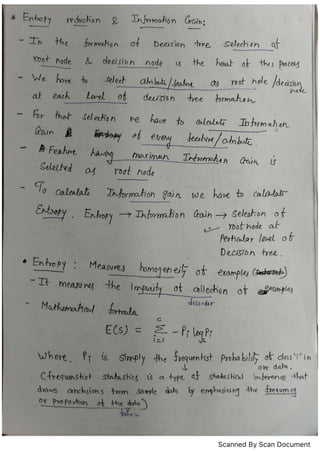 * Entropy reduction & Information Gain:
- In the formation of Decision tree, selection of
root node & decision node is the heart of this process
- We have to select atribute/feature as root node/decision
node
at each level of decision tree formation.
- For that selection we have to calculate Information
Gain of every feature/atribute.
- A Feature having maximum Information Gain is
selected as root node.
- To calculate Information gain we have to calculate
Entropy. Entropy → Information Gain → Selection of
root node at
Perticular level of
Decision tree.
• Entropy : Measures homogeneity of examples
- It measures the impurity of collection of examples
disorder
- Mathematical formula
E(S) = c Σ i=1 - Pi log Pi
2
Where, Pi is simply the frequentist probability of class 'i' in
↓ our data.
(frequentist statastics is a type of statastical inference that
draws conclusions from sample data by emphasizing the frequency
or proportion of the data)